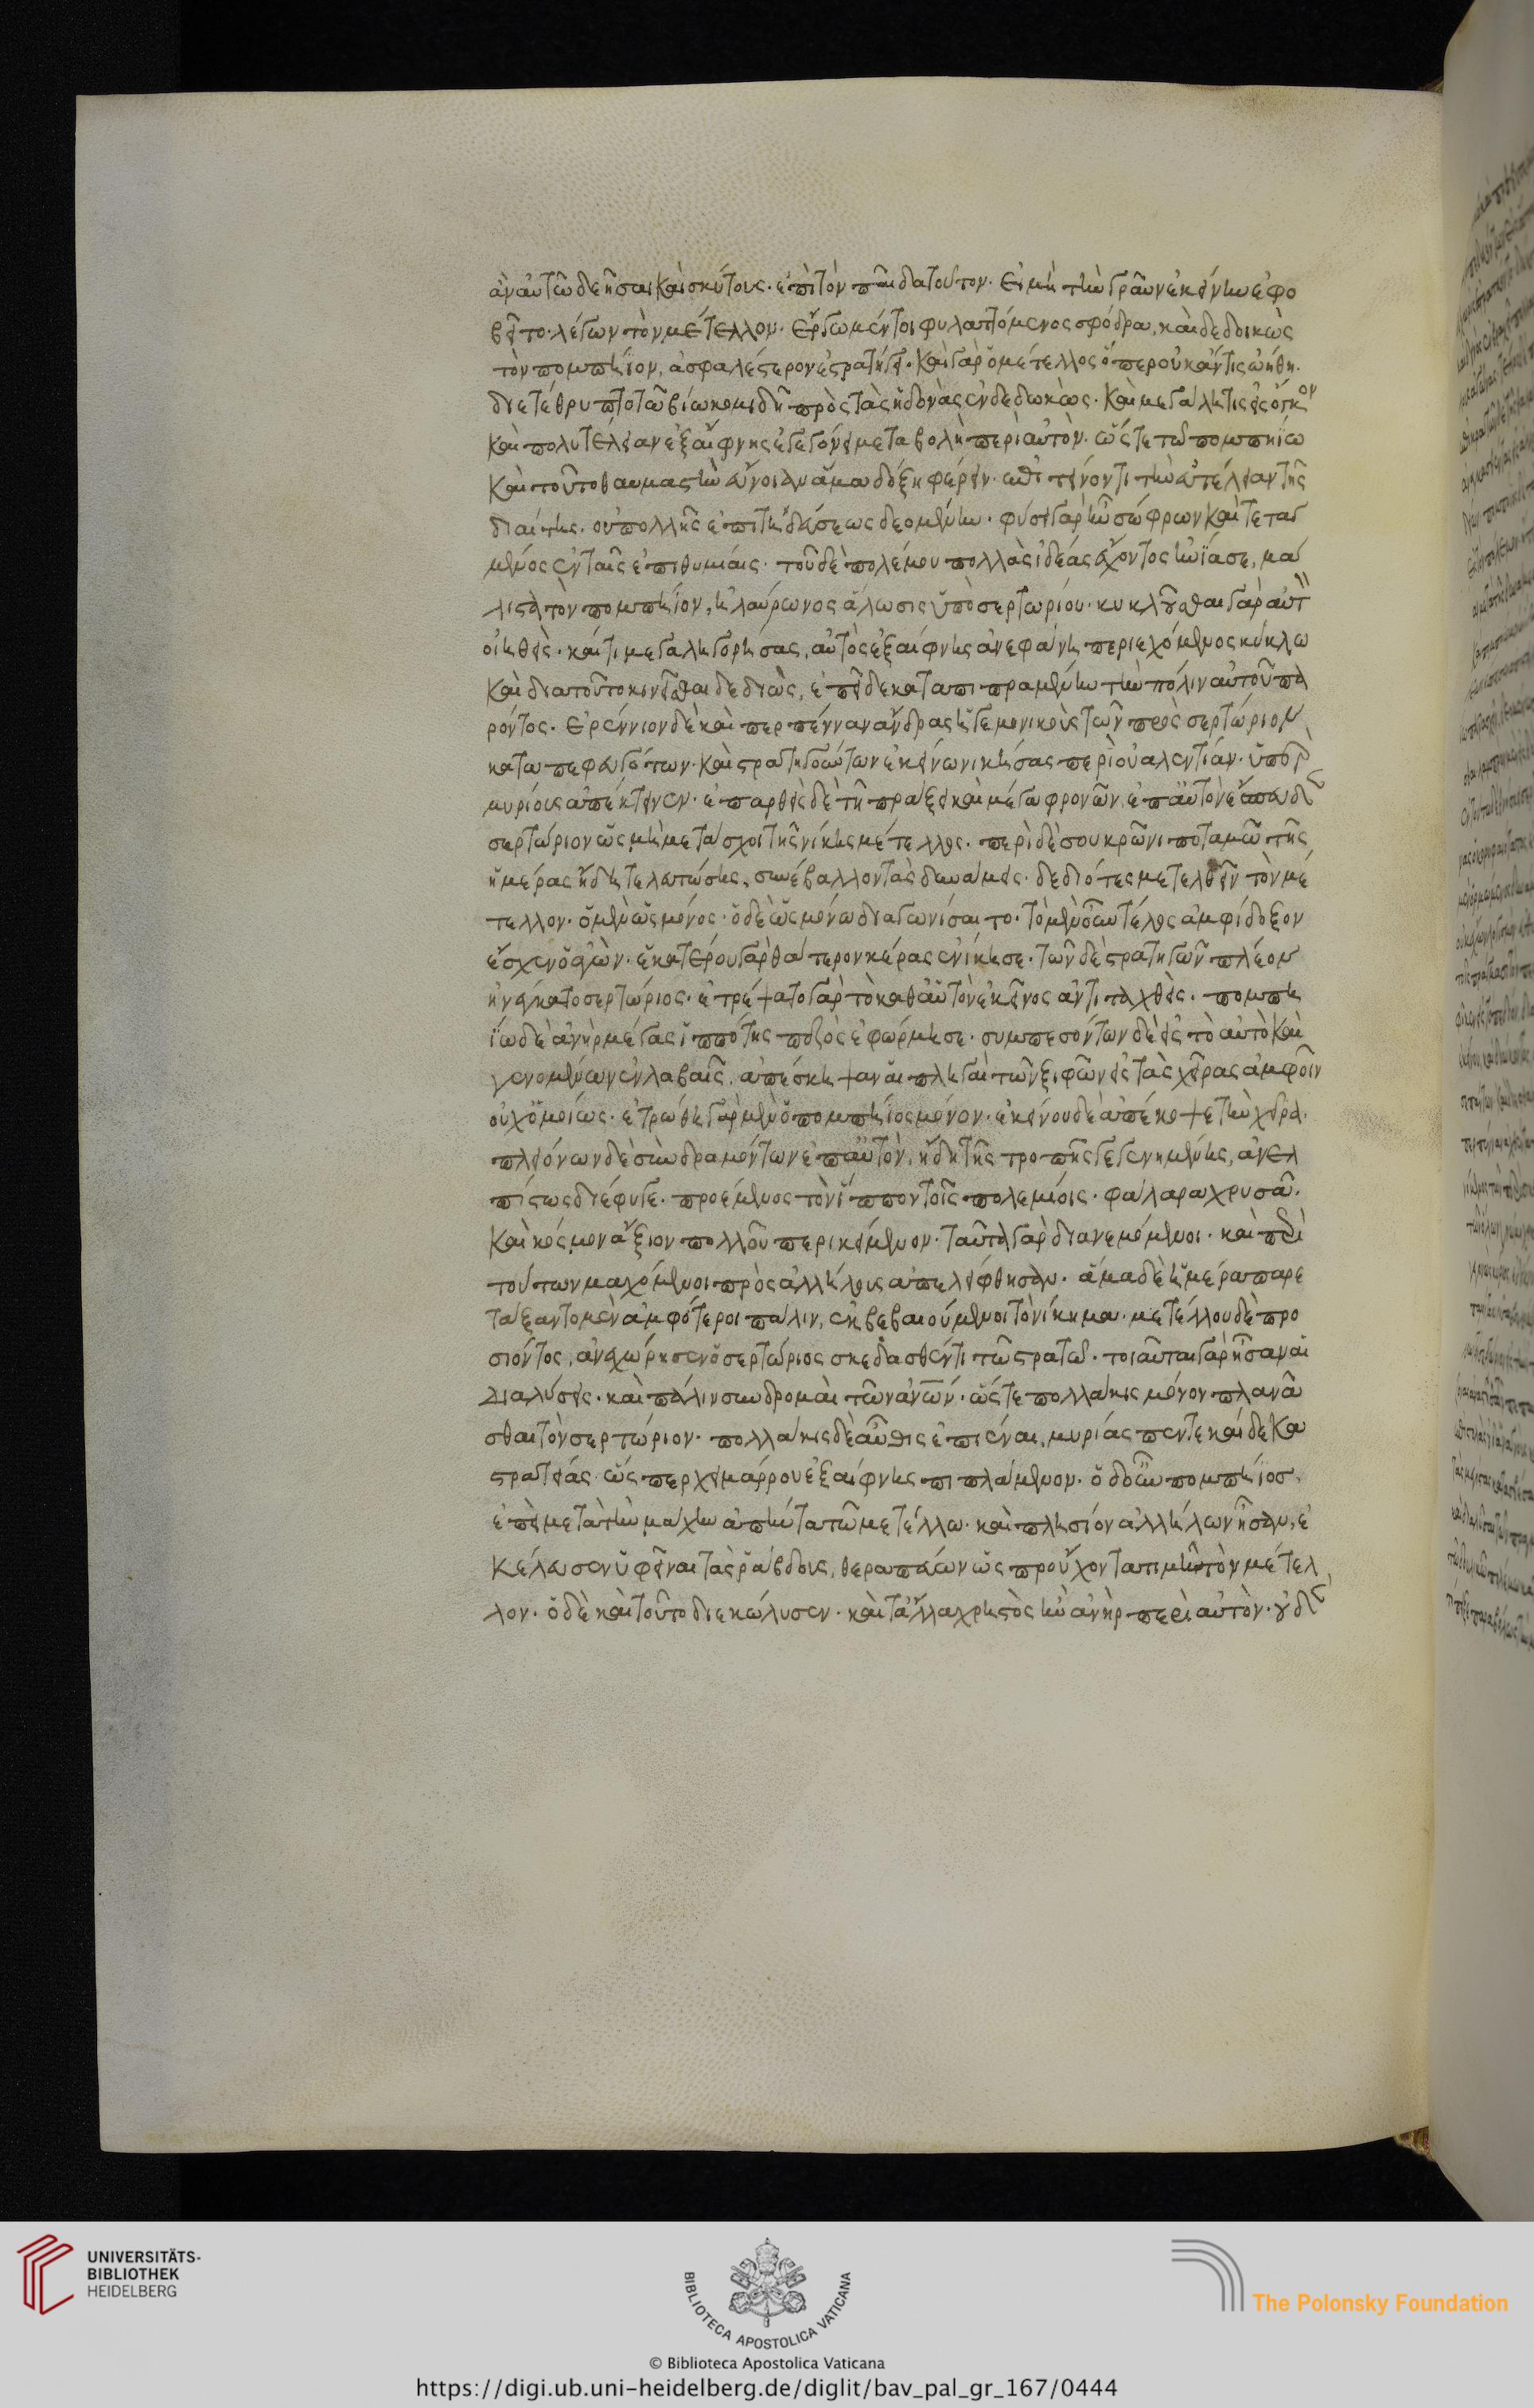 ἂν αὐτῶ δεῆσαι καὶ σκύτους. ἐπὶ τὸν παῖδα τοῦτον. εἰ μὴ τὴν γραῦν ἐκείνην ἐφο
βεῖτο. λέγων τὸν μέτελλον. ἔργω μέντοι φυλαττόμενος σφόδρα, καὶ δεδοικὼς
τὸν πομπήϊον, ἀσφαλέστερον ἐστρατήγει. καὶ γὰρ ὁ μέτελλος ὅπερ οὐκ ἄν τις ὠήθη.
διετέθρυπτο τῶ βίω κομιδῆ πρὸς τὰς ἡδονὰς ἐνδεδωκὼς. καὶ μεγάλη τις εἰς ὄγκον
καὶ πολυτέλειαν ἐξαίφνης ἐγεγόνει μεταβολὴ περὶ αὐτὸν. ὥστε τῶ πομπηΐω
καὶ τοῦτο θαυμαστὴν εὔνοιαν ἅμα δόξη φέρειν. ἐπιτείνοντι τὴν εὐτέλειαν τῆς
διαίτης. οὐ πολλῆς ἐπιτηδεύσεως δεομένην. φύσει γὰρ ἦν σώφρων καὶ τεταγ
μένος ἐν ταῖς ἐπιθυμίαις. τοῦ δὲ πολέμου πολλὰς ἰδέας ἔχοντος ἠνίασε, μά
λιστα τὸν πομπήϊον, ἡ λαύρωνος ἅλωσις ὑπὸ σερτωρίου. κυκλοῦσθαι γὰρ αὐτ
οἰηθεὶς. καί τι μεγαληγορήσας, αὐτὸς ἐξαίφνης ἀνεφάνη περιεχόμενος κύκλω
καὶ διατοῦτο κινεῖσθαι δεδιὼς, ἐπεῖδε καταπιπραμένην τὴν πόλιν αὐτοῦ πα
ρόντος. ἐρέννιον δὲ καὶ περπένναν ἄνδρας ἡγεμονικοὺς τῶν πρὸς σερτώριον
καταπεφευγότων. καὶ στρατηγούντων ἐκείνω νικήσας περὶ οὐαλεντίαν. ὑπὲρ
μυρίους ἀπέκτεινεν. ἐπαρθεὶς δὲ τῆ πράξει καὶ μέγα φρονῶν, ἐπ' αὐτὸν ἔσπευδε
σερτώριον ὡς μὴ μετάσχοι τῆς νίκης μέτελλος. περὶ δὲ σουκρῶνι ποταμῶ τῆς
ἡμέρας ἤδη τελευτώσης, συνέβαλλον τὰς δυνάμεις. δεδιότες μετελθεῖν τὸν μέ
τελλον. ὁ μὲν ὡς μόνος. ὁ δὲ ὡς μόνω διαγωνίσαιτο. τὸ μὲν οὖν τέλος ἀμφίδοξον
ἔσχεν ὁ ἀγὼν. ἑκατέρου γὰρ θάτερον κέρας ἐνίκησε. τῶν δὲ στρατηγῶν πλέον
ἠνέγκατο σερτώριος. ἐτρέψατο γὰρ τὸ καθ' αὑτὸν ἐκεῖνος ἀντιταχθεὶς. πομπη
ΐω δὲ ἀνὴρ μέγας ἱππότης πεζὸς ἐφώρμησε. συμπεσόντων δὲ εἰς τὸ αὐτὸ καὶ
γενομένων ἐν λαβαῖς, ἀπέσκηψαν αἱ πληγαὶ τῶν ξιφῶν εἰς τὰς χεῖρας ἀμφοῖν
οὐχ ὁμοίως. ἐτρώθη γὰρ μὲν ὁ πομπήϊος μόνον. ἐκείνου δὲ ἀπέκοψε τὴν χεῖρα.
πλειόνων δὲ συνδραμόντων ἐπ' αὐτὸν, ἤδη τῆς τροπῆς γεγενημένης, ἀνελ
πίστως διέφυγε. προέμενος τὸν ἵππον τοῖς πολεμίοις. φάλαρα χρυσᾶ.
καὶ κόσμον ἄξιον πολλοῦ περικείμενον. ταῦτα γὰρ διανεμόμενοι. καὶ περὶ
τούτων μαχόμενοι πρὸς ἀλλήλους ἀπελείφθησαν. ἅμα δὲ ἡμέρα παρε
τάξαντο μὲν ἀμφότεροι πάλιν, ἐκβεβαιούμενοι τὸ νίκημα. μετέλλου δὲ προ
σιόντος, ἀνεχώρησεν ὁ σερτώριος σκεδασθέντι τῶ στρατῶ. τοιαῦται γὰρ ἦσαν αἱ
διαλύσεις. καὶ πάλιν συνδρομαὶ τῶν ἀνων. ὥστε πολλάκις μόνον πλανᾶ
σθαι τὸν σερτώριον. πολλάκις δὲ αὖθις ἐπιέναι, μυριάσι πεντεκαίδεκα
στρατιᾶς. ὥσπερ χειμάρρουν ἐξαίφνης πιπλάμενον. ὁ δ' οὖν πομπήϊος,
ἐπεὶ μετὰ τὴν μάχην ἀπήντα τῶ μετέλλω. καὶ πλησίον ἀλλήλων ἦσαν, ἐ
κέλευσεν ὑφεῖναι τὰς ῥάβδους, θεραπεύων ὡς προὔχοντα τιμῆ τὸν μέτελ
λον. ὁ δὲ καὶ τοῦτο διεκώλυσεν. καὶ τἆλλα χρηστὸς ἦν ἀνὴρ περὶ αὐτὸν. οὐδὲν
UNIVERSITÄTS-
BIBLIOTHEK
HEIDELBERG
BIBLIOTECA APOSTOLICA VATICANA
The Polonsky Foundation
© Biblioteca Apostolica Vaticana
https://digi.ub.uni-heidelberg.de/diglit/bav_pal_gr_167/0444